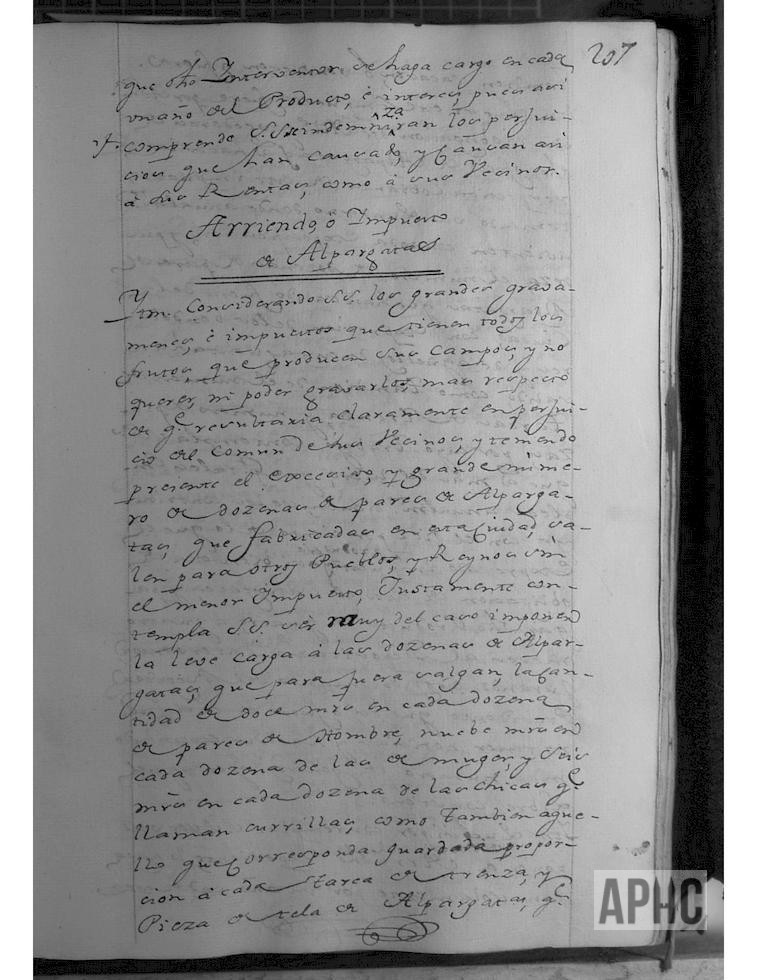 207
que dho Interventor se haga cargo en cada
un año del Producto, é interes, pues así
comprende S.S. se indemnizaran los perjui-
cios que han causado, y causan asi
á sus Rentas, como á sus Vecinos.
Arriendo, ó Impuesto
de Alpargatas
Itm. Considerando S.S. los grandes grava-
menes, é impuestos que tienen todos los
frutos, que producen sus Campos, y no
querer, ni poder gravarlos mas respecto
de q.e resultaria claramente en perjui-
cio del Comun de sus Vecinos, y teniendo
presente el excessivo, y grande nume-
ro de dozenas de pares de Alparga-
tas, que fabricadas en esta Ciudad, sa-
len para otros Pueblos, y Reynos sin
el menor Impuesto, Justamente con-
templa S.S. ser muy del caso imponer
la leve carga á las dozenas de Alpar-
gatas, que para fuera salgan, la can-
tidad de doce mrs en cada dozena
de pares de Hombre, nuebe mrs en
cada dozena de las de muger, y seis
mrs en cada dozena de las chicas q.e
llaman currillas, como tambien aque-
llo que corresponda guardada propor-
cion á cada tarea de trenza, y
Pieza de tela de Alpargatas, q.e
APHC